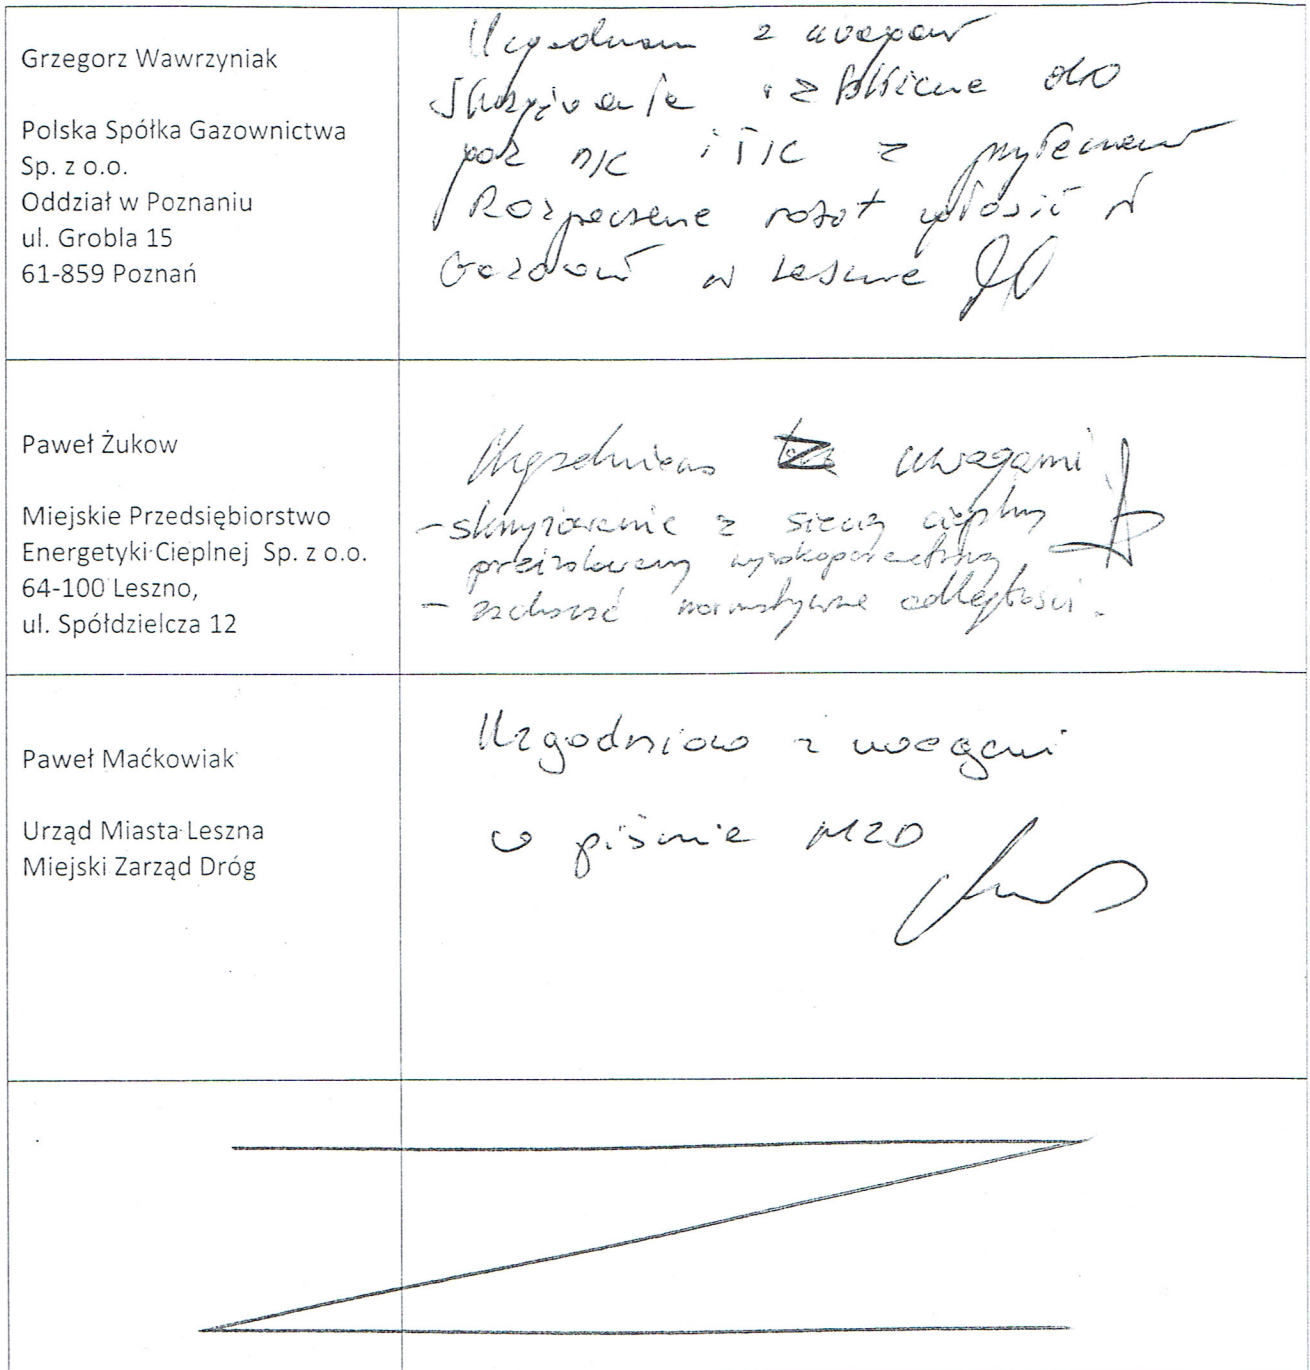 Grzegorz Wawrzyniak
Polska Spółka Gazownictwa
Sp. z o.o.
Oddział w Poznaniu
ul. Grobla 15
61-859 Poznań
z
i
z
Rozpoczęcie robót zgłosić
w Lesznie
Paweł Żukow
Miejskie Przedsiębiorstwo
Energetyki Cieplnej Sp. z o.o.
64-100 Leszno,
ul. Spółdzielcza 12
uwagami
- skrzyżowanie z siecią cieplną
preizolowaną wysokoparametrową
- zachować normatywne odległości.
Paweł Maćkowiak
Urząd Miasta Leszna
Miejski Zarząd Dróg
Uzgodniono z uwagami
w piśmie MZD